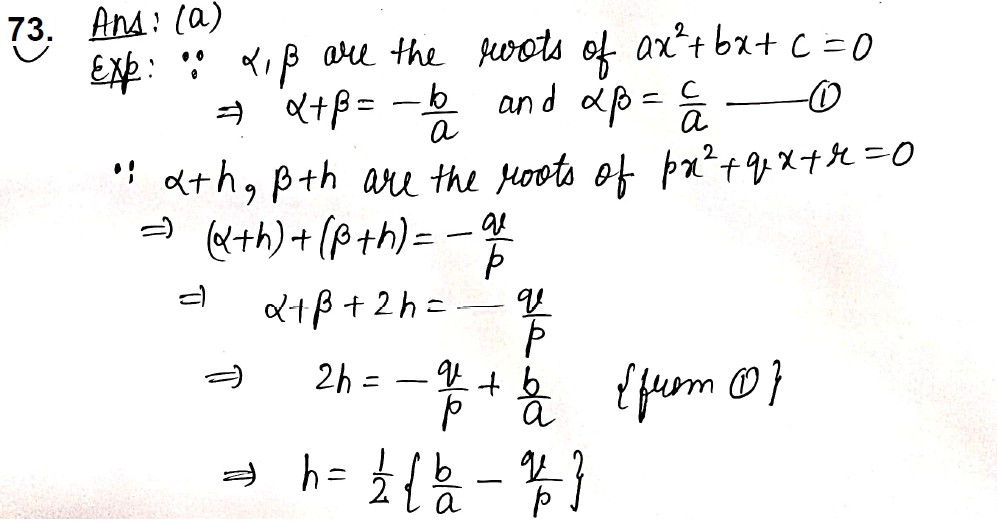 73. Ans: (a)
Exp: ∵ α, β are the roots of ax² + bx + c = 0
⇒ α+β = -b/a and αβ = c/a —— ①
∵ α+h, β+h are the roots of px² + qx + r = 0
⇒ (α+h) + (β+h) = - q/p
⇒ α+β + 2h = - q/p
⇒ 2h = - q/p + b/a {from ①}
⇒ h = 1/2 { b/a - q/p }